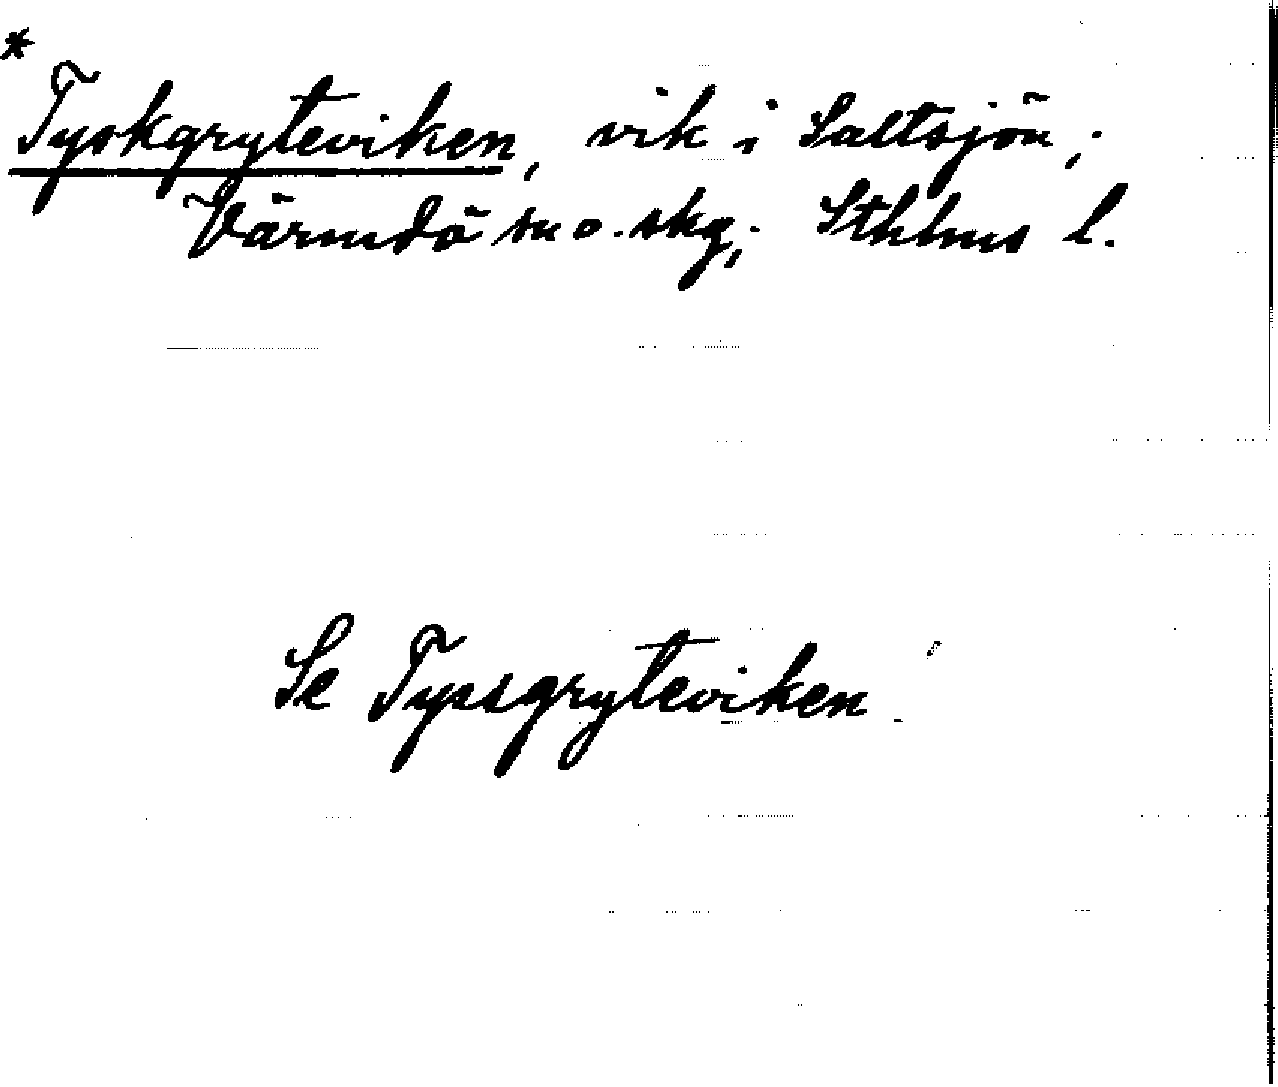 *
Tyskgryteviken, vik i Saltsjön;
Värmdö sn o. skg; Sthlms l.
Se Tyssgryteviken